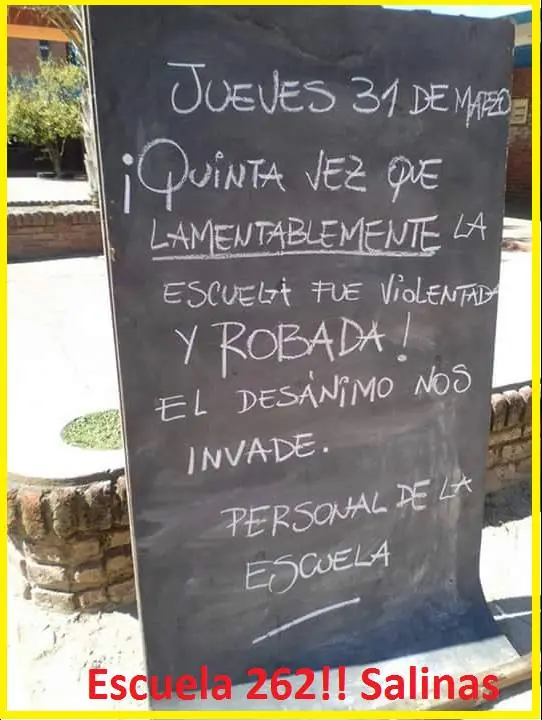 JUEVES 31 DE MARZO
¡QUINTA VEZ QUE
LAMENTABLEMENTE LA
ESCUELA FUE VIOLENTADA
Y ROBADA!
EL DESÁNIMO NOS
INVADE.
PERSONAL DE LA
ESCUELA
Escuela 262!! Salinas